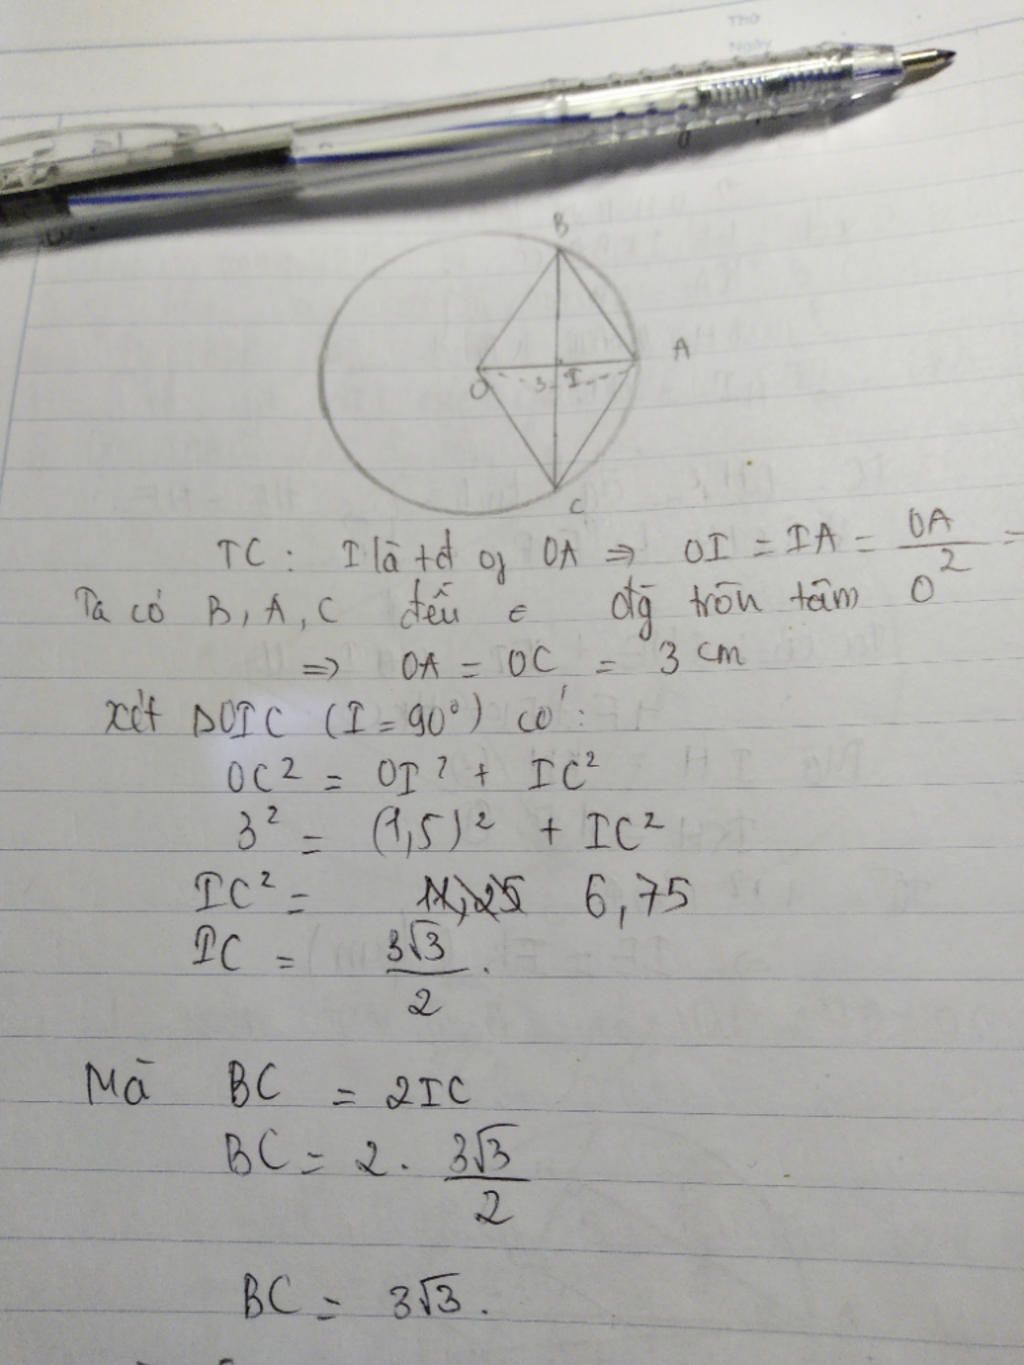 Thứ
Ngày
B
A
O 3 I
C
TC: I là tđ of OA ⇒ OI = IA = OA/2 =
Ta có B, A, C đều ∈ đg tròn tâm O
⇒ OA = OC = 3 cm
Xét ΔOIC (I = 90°) có:
OC² = OI² + IC²
3² = (1,5)² + IC²
IC² = 11,25 6,75
IC = 3√3/2.
Mà BC = 2IC
BC = 2 . 3√3/2
BC = 3√3.